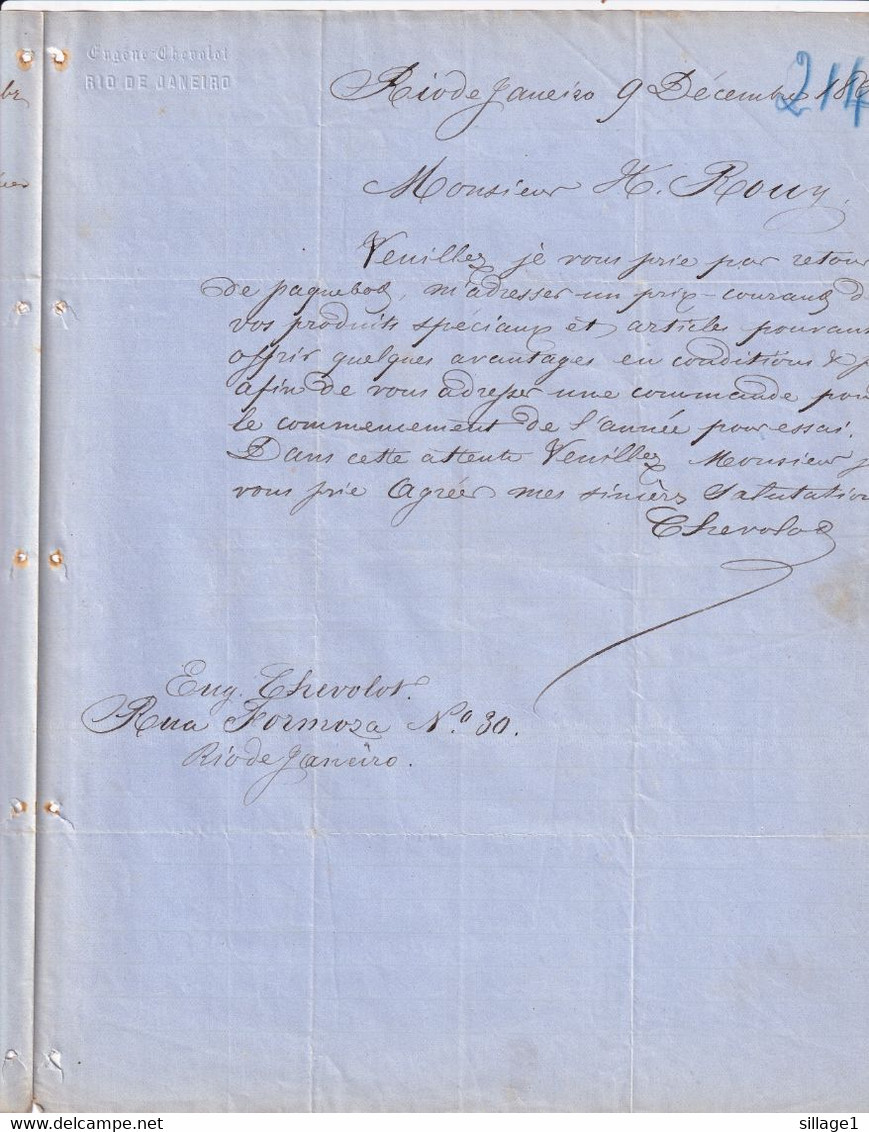 Eugène Chevolot
RIO DE JANEIRO
214
Rio de Janeiro 9 Décembre 18
Monsieur H. Rouy.
Veuillez je vous prie par retour
de paquebot, m'adresser un prix-courant d
vos produits spéciaux et articles pouvant
offrir quelques avantages en conditions & p
afin de vous adresser une commande pou
le commencement de l'année pour essai.
Dans cette attente Veuillez Monsieur j
vous prie Agréer mes sincères Salutation
Chevolot
Eug. Chevolot.
Rua Formoza N.º 30.
Rio de Janeiro.
delcampe.net
sillage1